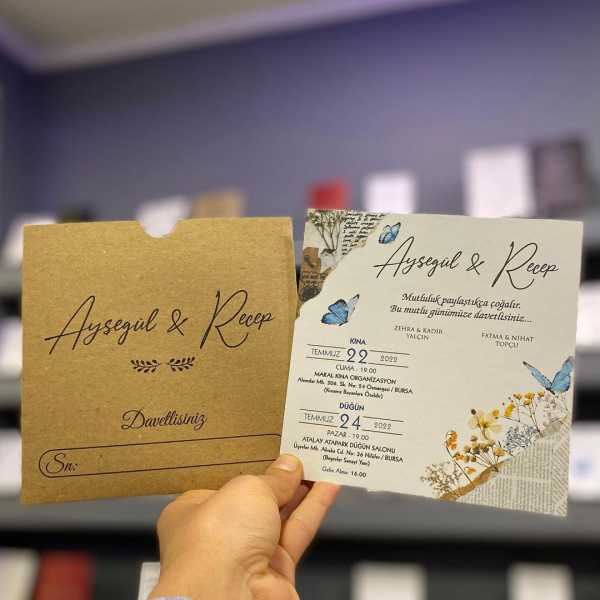 Ayşegül & Recep
Davetlisiniz
Sn:
Ayşegül & Recep
Mutluluk paylaştıkça çoğalır.
Bu mutlu günümüze davetlisiniz...
ZEHRA & KADİR
YALÇIN
FATMA & NİHAT
TOPÇU
KINA
TEMMUZ 22 2022
CUMA - 19:00
MARAL KINA ORGANİZASYON
Alemdar Mh. 306. Sk. No: 24 Osmangazi / BURSA
(Kınamız Bayanlara Özeldir)
DÜĞÜN
TEMMUZ 24 2022
PAZAR - 19:00
ATALAY ATAPARK DÜĞÜN SALONU
Üçevler Mh. Akaba Cd. No: 36 Nilüfer / BURSA
(Beşevler Sanayi Yanı)
Gelin Alma: 16.00